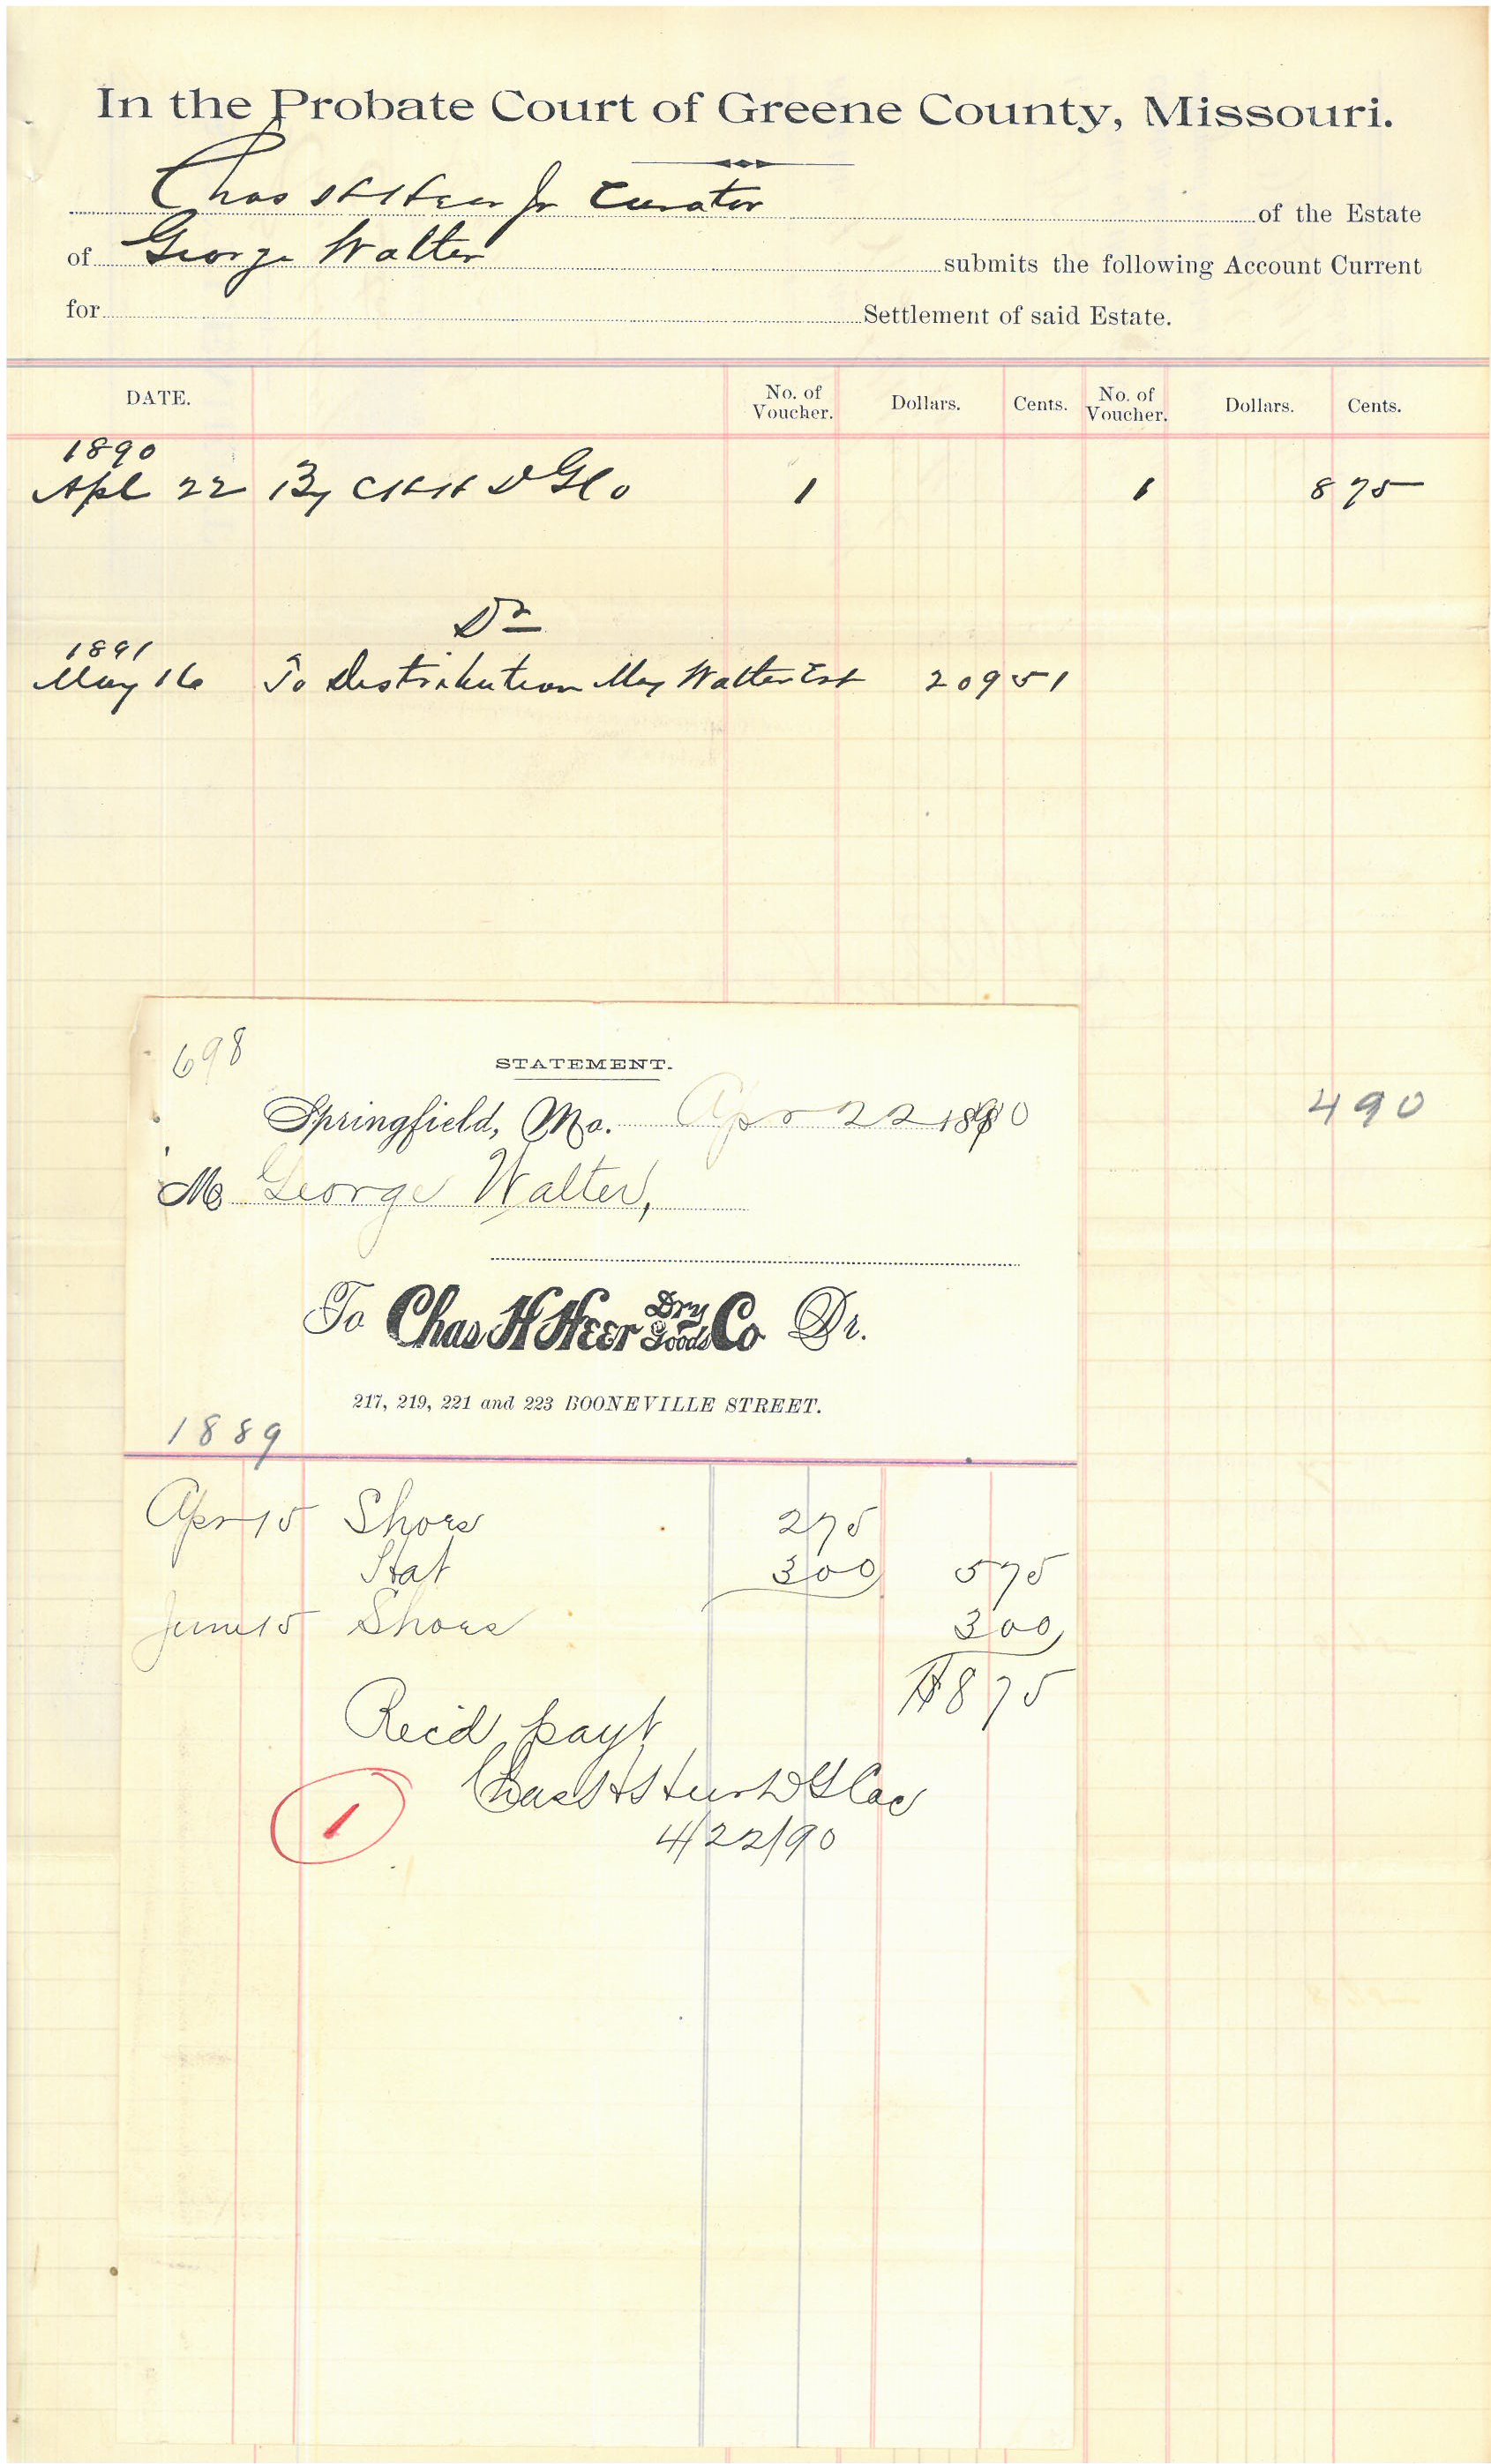 In the Probate Court of Greene County, Missouri.
Chas H Heer Jr Curator of the Estate
of George Walter submits the following Account Current
for Settlement of said Estate.
DATE. No. of Voucher. Dollars. Cents. No. of Voucher. Dollars. Cents.
1890
Apl 22 By CHH D G Co 1 1 8 75
Dr
1891
May 16 To Distribution May Walter Est 209 51
698
STATEMENT.
Springfield, Mo. Apr 22 1890
4 90
M George Walter,
To Chas H Heer Dry Goods Co Dr.
217, 219, 221 and 223 BOONEVILLE STREET.
1889
Apr 15 Shoes 2 75
Hat 3 00 5 75
June 15 Shoes 3 00
$8 75
Recd payt
Chas H Heer D G Co
1
4/22/90